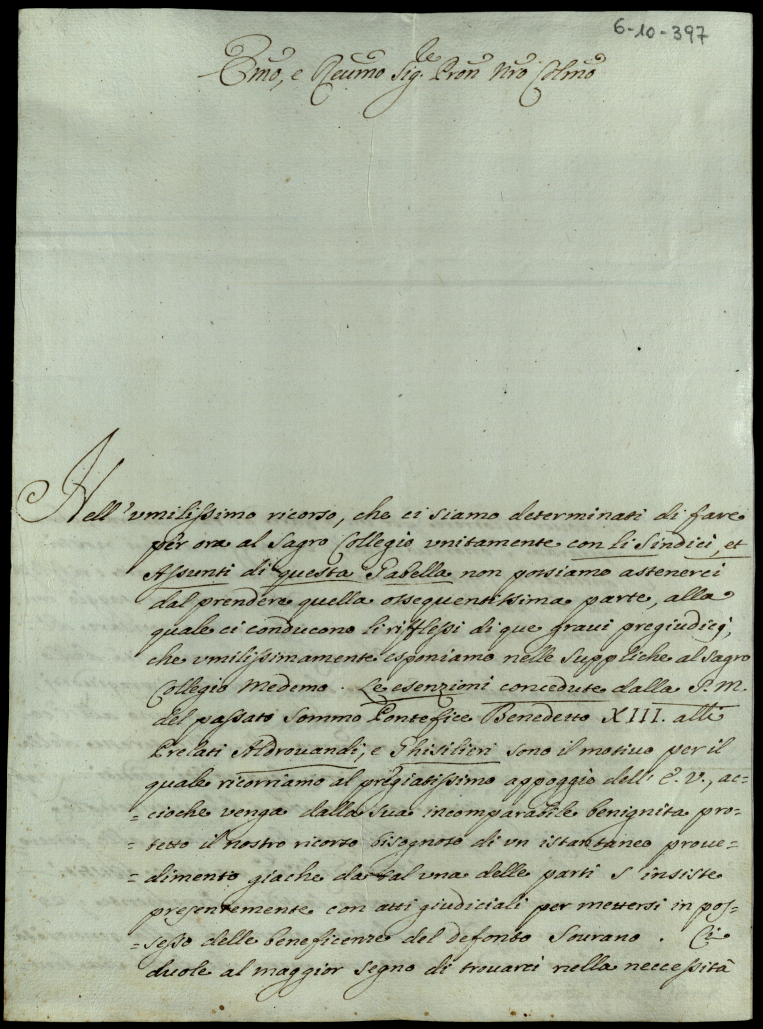 6-10-397
Emo, e Reumo Sig.re Pron Nro Colmo
Nell'vmilissimo ricorso, che ci siamo determinati di fare
per ora al Sagro Collegio vnitamente con li Sindici, et
Assunti di questa Gabella non possiamo astenerci
dal prendere quella ossequentissima parte, alla
quale ci conducono li riflessi di que gravi pregiudicj,
che vmilissimamente esponiamo nelle Suppliche al Sagro
Collegio Medemo. Le esenzioni concedute dalla S. M.
del passato Sommo Pontefice Benedetto XIII. alli
Prelati Aldrovandi, e Ghisilieri sono il motivo per il
quale ricorriamo al pregiatissimo appoggio dell' E. V., ac=
=cioche venga dalla sua incomparabile benignita pro=
=tetto il nostro ricorso bisognoso di vn istantaneo proue=
=dimento giache da tal vna delle parti s'insiste
presentemente con atti giudiciali per mettersi in pos=
=sesso delle beneficenze del defonto Sourano. Ci
duole al maggior segno di trouarci nella neccessità